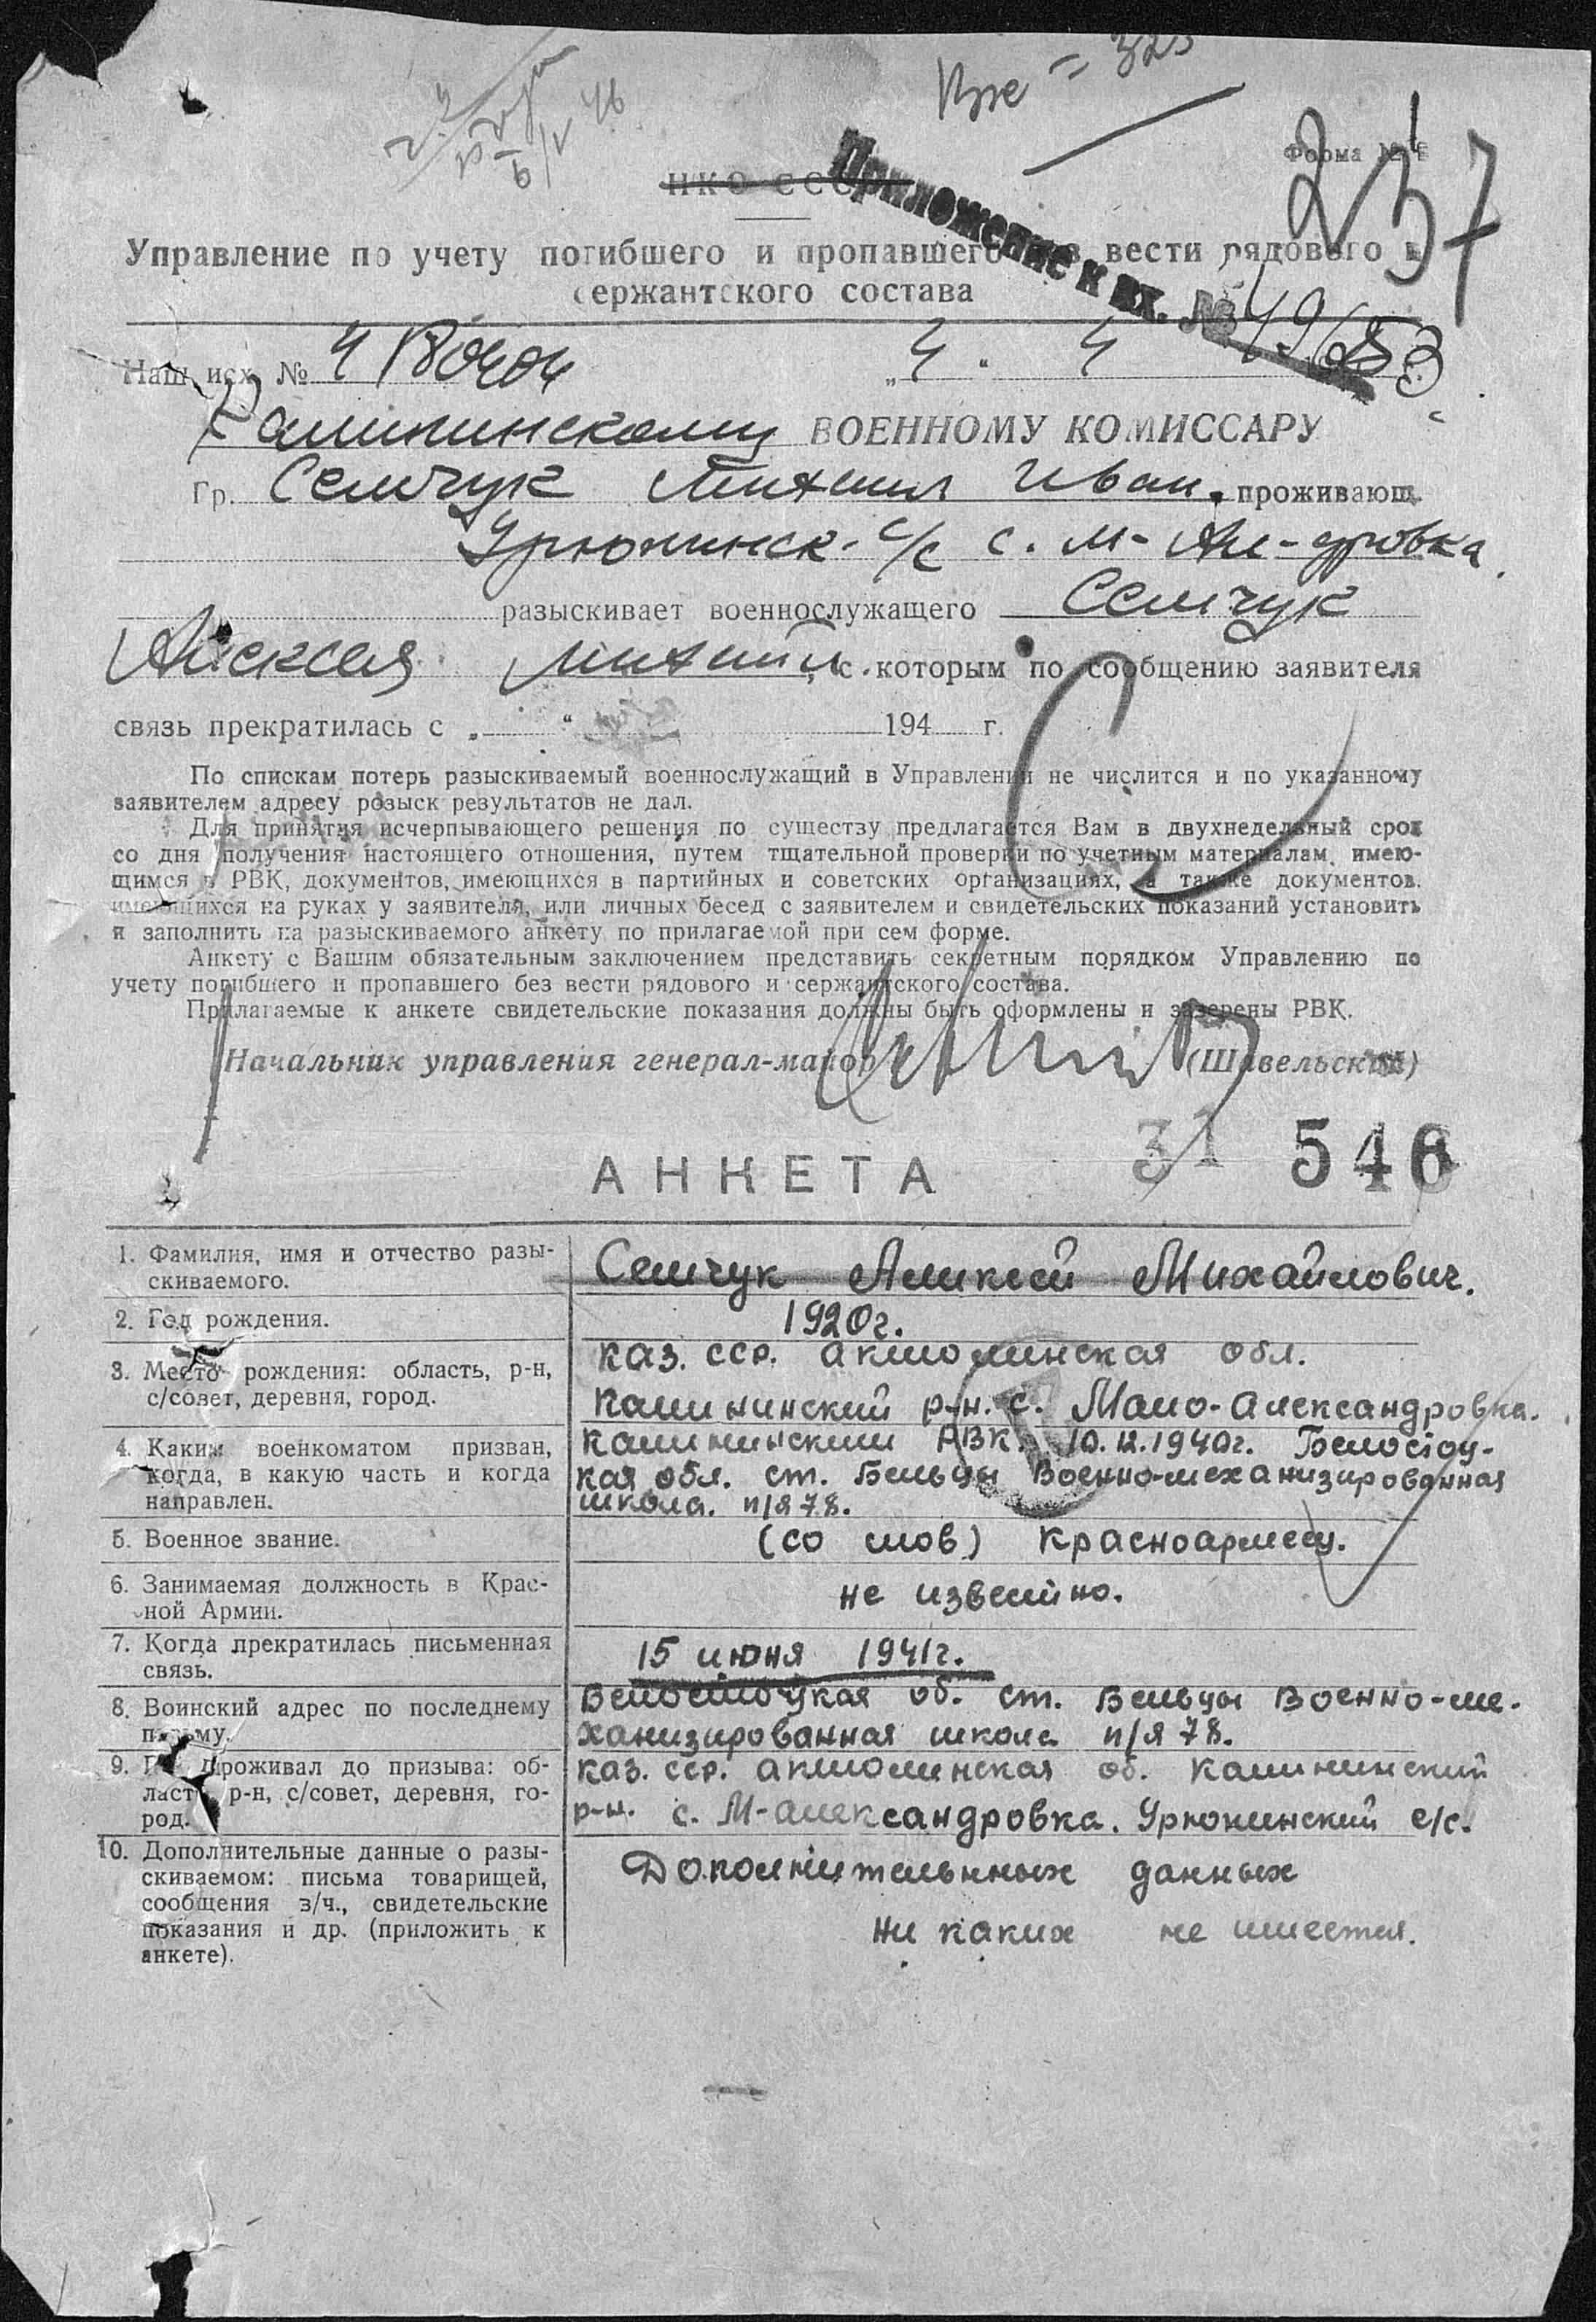 Форма №
237
НКО СССР
Приложение к вх. №
Управление по учету погибшего и пропавшего без вести рядового и
сержантского состава
Наш исх. № „4“ 4
Калининскому ВОЕННОМУ КОМИССАРУ
Гр. Семчук Михаил Иван. проживающ.
Урюпинск. с/с с. М-Ал-дровка
разыскивает военнослужащего Семчук
Алексея Михайл. с которым по сообщению заявителя
связь прекратилась с „ “ 194 г.
По спискам потерь разыскиваемый военнослужащий в Управлении не числится и по указанному
заявителем адресу розыск результатов не дал.
Для принятия исчерпывающего решения по существу предлагается Вам в двухнедельный срок
со дня получения настоящего отношения, путем тщательной проверки по учетным материалам, имею-
щимся в РВК, документов, имеющихся в партийных и советских организациях, а также документов,
имеющихся на руках у заявителя, или личных бесед с заявителем и свидетельских показаний установить
и заполнить на разыскиваемого анкету по прилагаемой при сем форме.
Анкету с Вашим обязательным заключением представить секретным порядком Управлению по
учету погибшего и пропавшего без вести рядового и сержантского состава.
Прилагаемые к анкете свидетельские показания должны быть оформлены и заверены РВК.
Начальник управления генерал-майор (Шавельский)
31 546
АНКЕТА
1. Фамилия, имя и отчество разы-
скиваемого.
Семчук Алексей Михайлович.
2. Год рождения.
1920г.
3. Место рождения: область, р-н,
с/совет, деревня, город.
Каз. сср. Акмолинская обл.
Калининский р-н. с. Мало-Александровка.
4. Каким военкоматом призван,
когда, в какую часть и когда
направлен.
Калининским РВК. 10.12.1940г. Белостоц-
кая обл. ст. Бельцы Военно-механизированная
школа. п/я 78.
5. Военное звание.
(со слов) Красноармеец.
6. Занимаемая должность в Крас-
ной Армии.
не известно.
7. Когда прекратилась письменная
связь.
15 июня 1941г.
8. Воинский адрес по последнему
письму.
Белостоцкая об. ст. Бельцы Военно-ме-
ханизированная школа п/я 78.
9. Где проживал до призыва: об-
ласть, р-н, с/совет, деревня, го-
род.
Каз. сср. Акмолинская об. Калининский
р-н. с. М-Александровка. Урюпинский с/с.
10. Дополнительные данные о разы-
скиваемом: письма товарищей,
сообщения з/ч., свидетельские
показания и др. (приложить к
анкете).
Дополнительнных данных
ни каких не имеется.